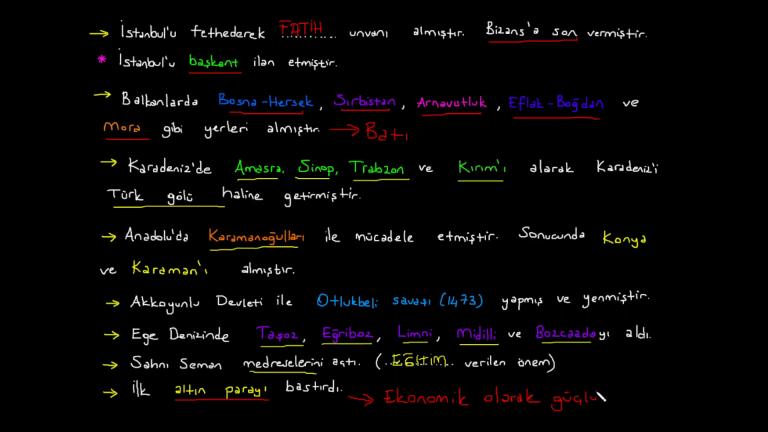 → İstanbul'u fethederek FATİH unvanı almıştır. Bizans'a son vermiştir.
* İstanbul'u başkent ilan etmiştir.
→ Balkanlarda Bosna-Hersek, Sırbistan, Arnavutluk, Eflak-Boğdan ve
Mora gibi yerleri almıştır → Batı
→ Karadeniz'de Amasra, Sinop, Trabzon ve Kırım'ı alarak Karadeniz'i
Türk gölü haline getirmiştir.
→ Anadolu'da Karamanoğulları ile mücadele etmiştir. Sonucunda Konya
ve Karaman'ı almıştır.
→ Akkoyunlu Devleti ile Otlukbeli savaşı (1473) yapmış ve yenmiştir.
→ Ege Denizinde Taşoz, Eğriboz, Limni, Midilli ve Bozcaadayı aldı.
→ Sahnı Seman medreselerini açtı. (..EĞİTİM.. verilen önem)
→ İlk altın parayı bastırdı. → Ekonomik olarak güçlü